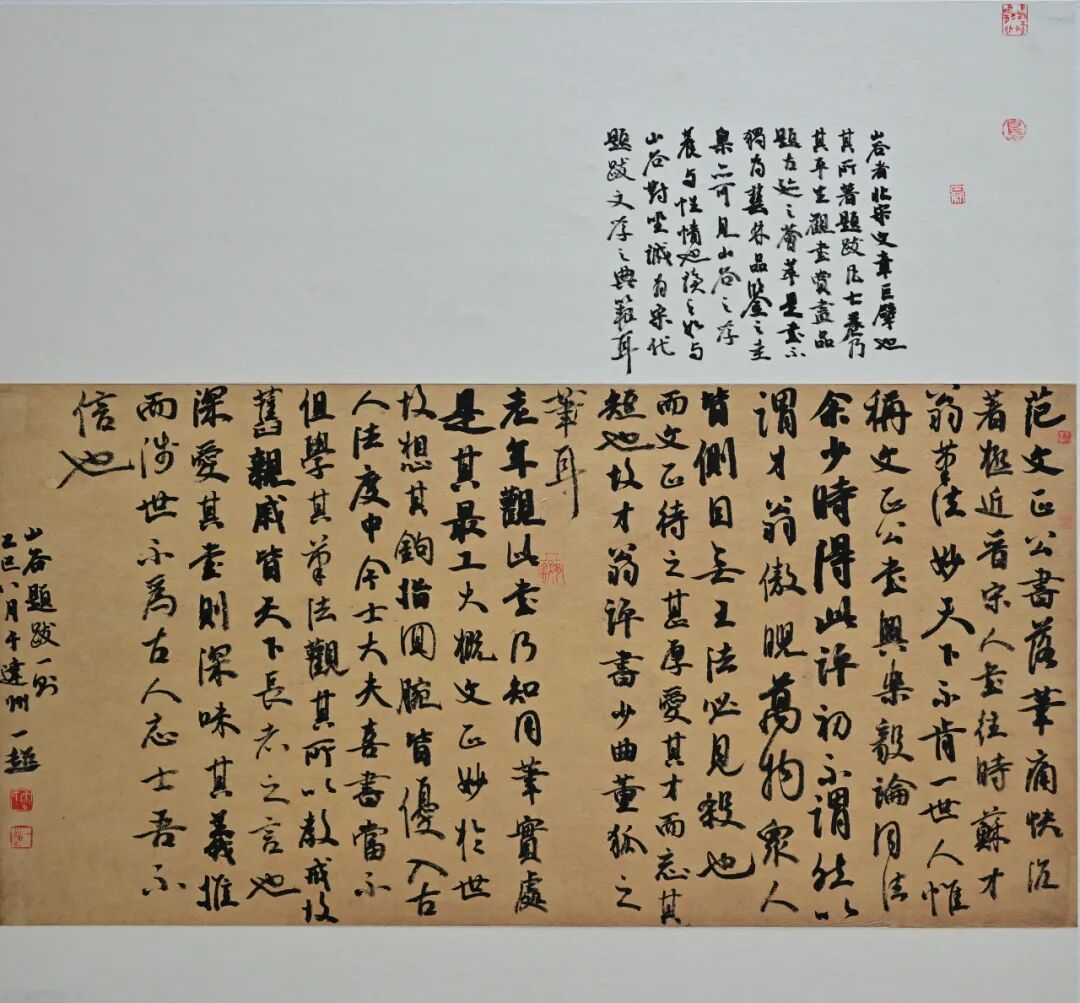 山谷者北宋文章巨擘也
其所著題跋凡卷乃
其平生觀書賞畫品
題古跡之薈萃是書不
獨為藝林品鑒之圭
臬亦可見山谷之學
養与性情也讀之如与
山谷對坐誠為宋代
題跋文學之典範耳
范文正公書落筆痛快沉
著極近晉宋人書往時蘇才
翁筆法妙天下不肯一世人惟
稱文正公書與樂毅論同法
余少時得此評初不謂然以
謂才翁傲睨萬物衆人
皆側目無王法必見殺也
而文正待之甚厚愛其才而忘其
短也故才翁評書少曲董狐之
筆耳
老年觀此書乃知用筆實處
是其最工大概文正妙於世
故想其鉤指回腕皆優入古
人法度中今士大夫喜書當不
但學其筆法觀其所以教戒故
舊親戚皆天下長者之言也
深愛其書則深味其義推
而涉世不為古人志士吾不
信也
山谷題跋一則
乙巳八月于達州一超